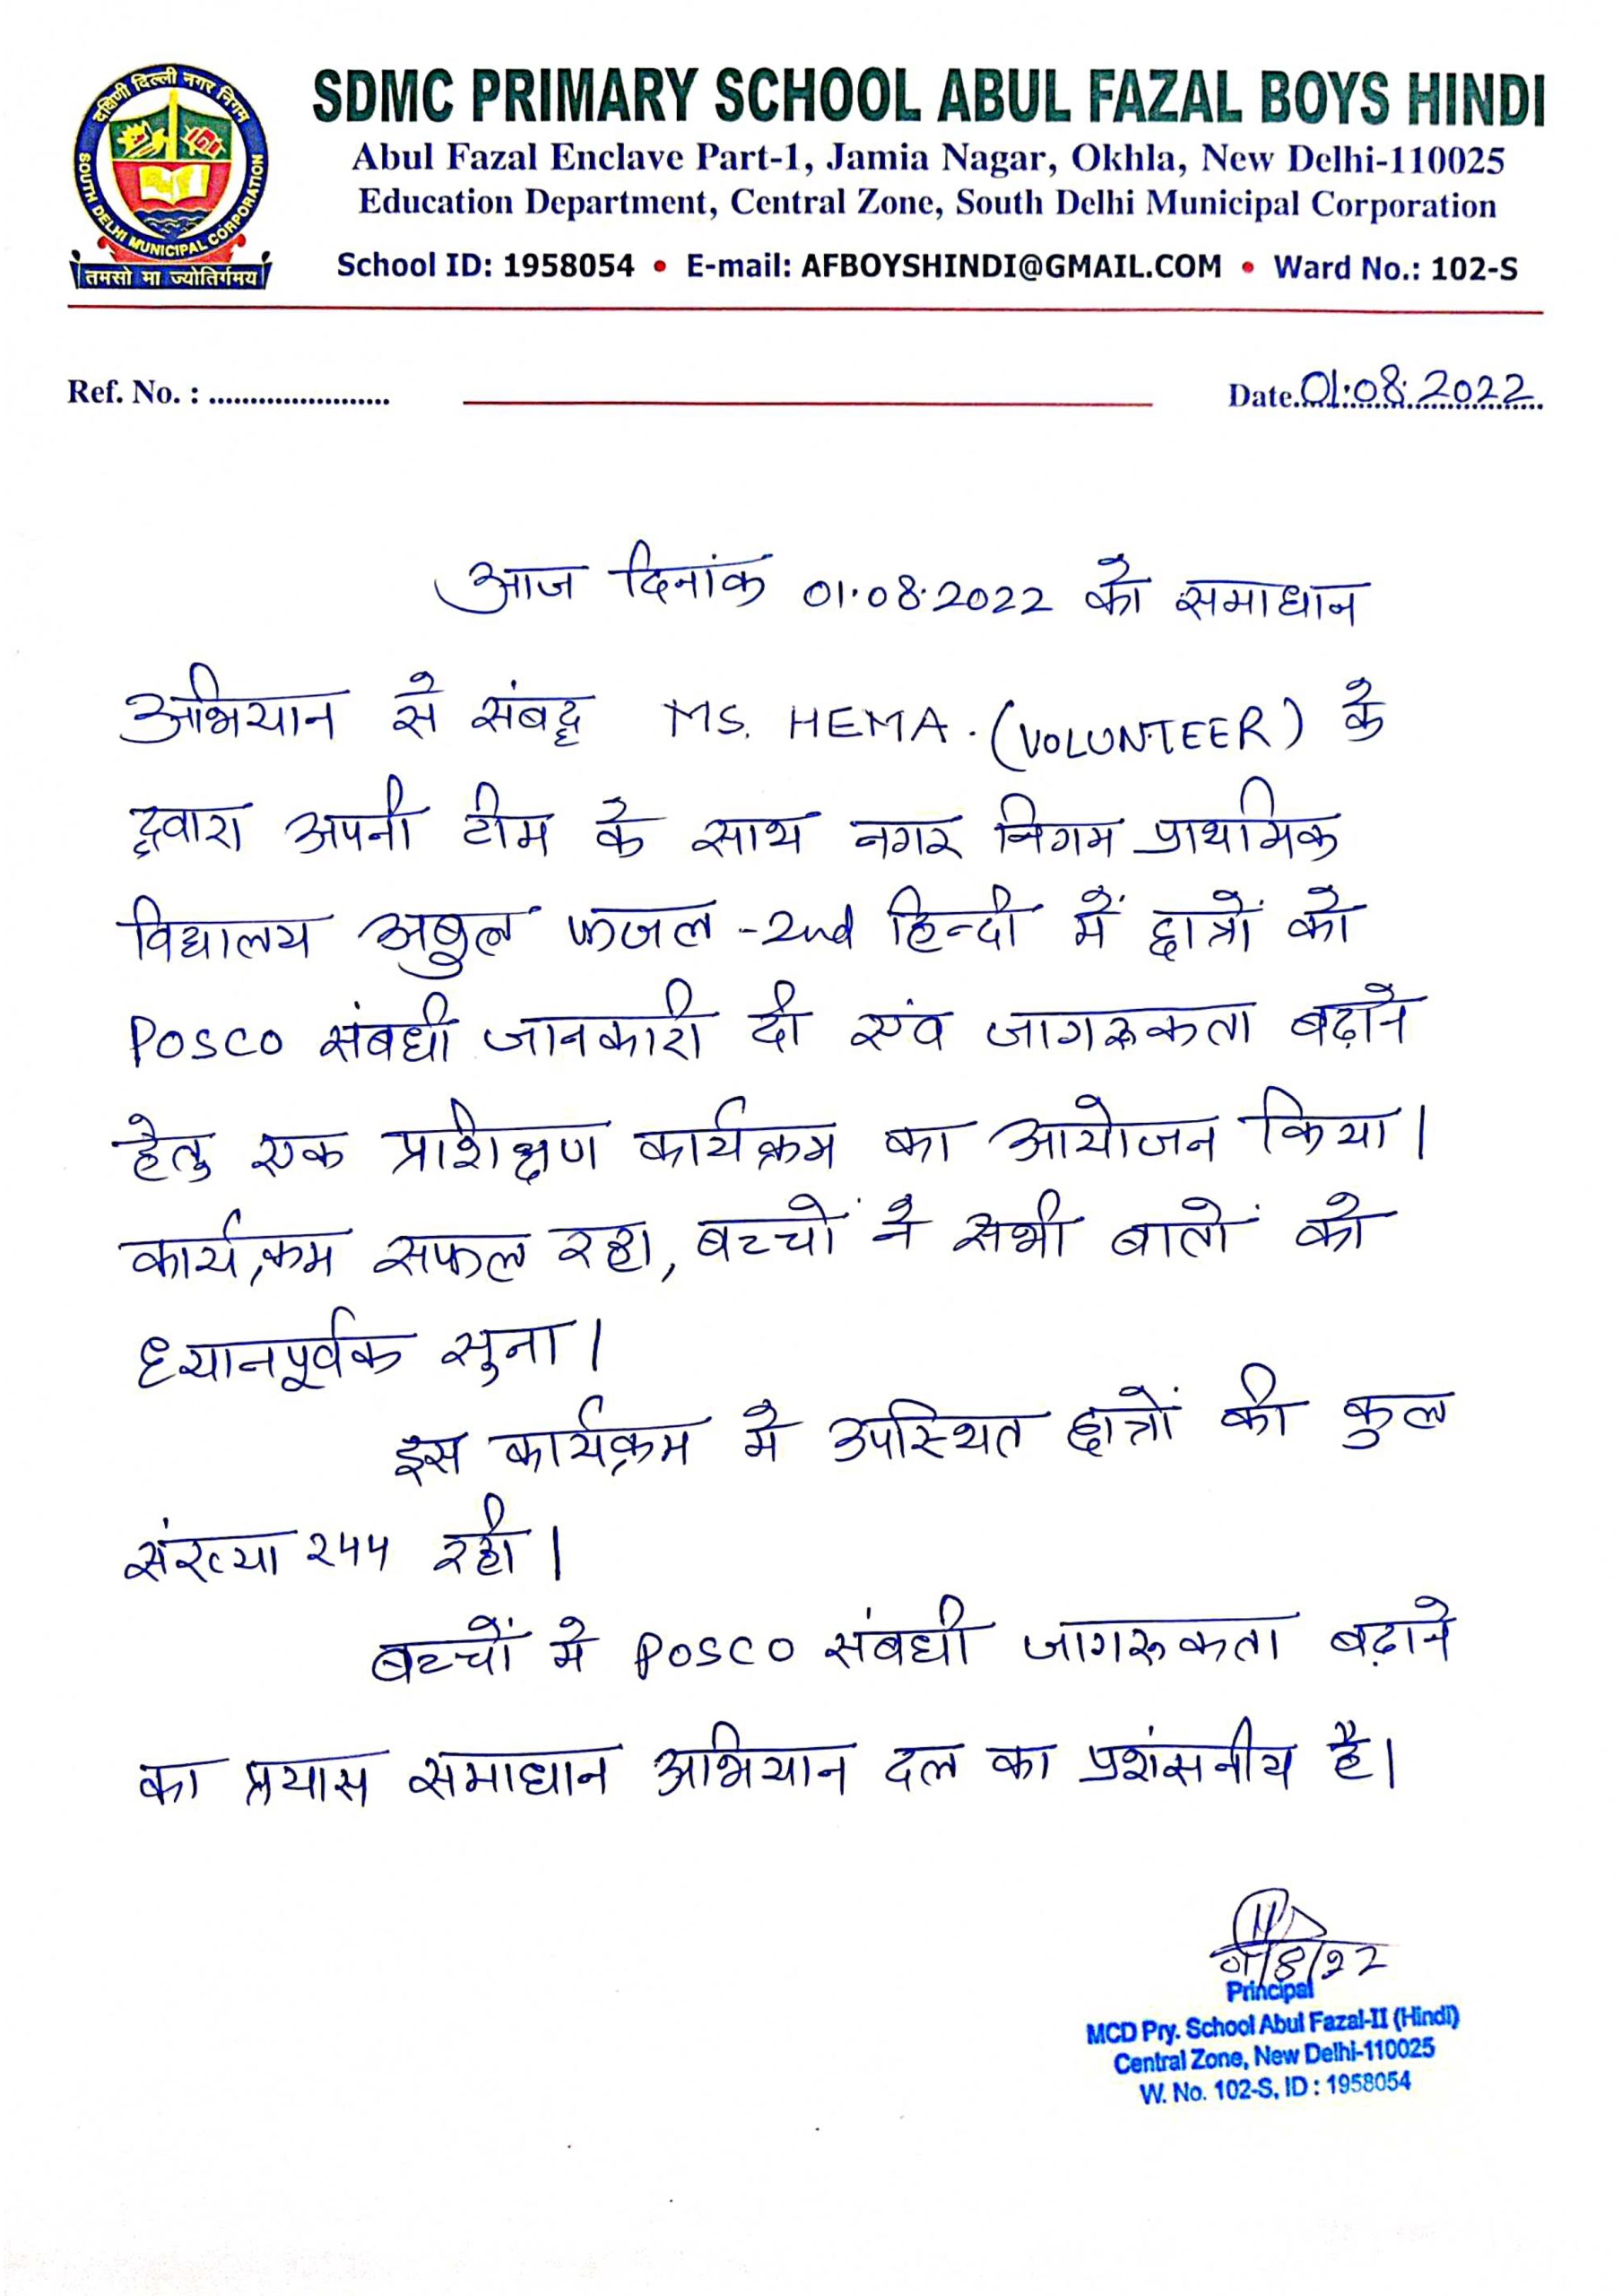 दक्षिणी दिल्ली नगर निगम
SOUTH DELHI MUNICIPAL CORPORATION
तमसो मा ज्योतिर्गमय
SDMC PRIMARY SCHOOL ABUL FAZAL BOYS HINDI
Abul Fazal Enclave Part-1, Jamia Nagar, Okhla, New Delhi-110025
Education Department, Central Zone, South Delhi Municipal Corporation
School ID: 1958054 • E-mail: AFBOYSHINDI@GMAIL.COM • Ward No.: 102-S
Ref. No. : ...................... Date.01.08.2022
आज दिनांक 01.08.2022 को समाधान
अभियान से संबद्ध MS. HEMA. (VOLUNTEER) के
द्वारा अपनी टीम के साथ नगर निगम प्राथमिक
विद्यालय अबुल फजल -2nd हिन्दी में छात्रों को
POSCO संबधी जानकारी दी एंव जागरूकता बढ़ाने
हेतु एक प्राशिक्षण कार्यक्रम का आयोजन किया।
कार्यक्रम सफल रहा, बच्चों ने सभी बातों को
ध्यानपूर्वक सुना।
इस कार्यक्रम मे उपस्थित छात्रों की कुल
संख्या 244 रही।
बच्चों मे POSCO संबधी जागरूकता बढ़ाने
का प्रयास समाधान अभियान दल का प्रशंसनीय है।
01/8/22
Principal
MCD Pry. School Abul Fazal-II (Hindi)
Central Zone, New Delhi-110025
W. No. 102-S, ID : 1958054